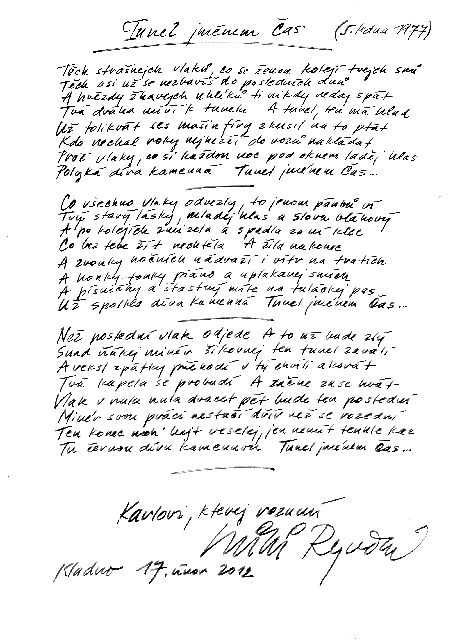 Tunel jménem Čas (5. ledna 1977)
Těch strašnejch vlaků, co se ženou kolejí tvejch snů
Těch asi už se nezbavíš do posledních dnů
A hvězdy žhavejch uhlíků ti nikdy nedaj spát
Tvá dráha míří k tunelu A tunel, ten má hlad
Už tolikrát ses mašinfíry zkusil na to ptát
Kdo nechal roky nejhezčí do vozů nakládat
Proč vlaky, co si každou noc pod oknem laděj hlas
Polyká díra kamenná Tunel jménem Čas...
Co všechno vlaky odvezly, to jenom pánbů ví
Tvý starý lásky, mladej hlas a slova bláhový
A po kolejích zmizela a spadla za ní klec
Co bez tebe žít nechtěla A žila nakonec
A zvonky nočních nádraží i vítr na tratích
A honky tonky piáno a uplakanej smích
A písničky a šťastný míle na tuláckej pas
Už spolkla díra kamenná Tunel jménem Čas...
Než poslední vlak odjede A to už bude zlý
Snad ňákej minér šikovnej ten tunel zavalí
A veksl zpátky přehodí v tý chvíli akorát
Tvá kapela se probudí A začne zase hrát
Vlak v nula nula dvacet pět bude ten poslední
Minér svou práci nestačí dřív než se rozední
Ten konec moh' bejt veselej, jen nemít tenhle kaz
Tu černou díru kamennou Tunel jménem Čas...
Karlovi, kterej rozumí
Miki Ryvola
Kladno 17. únor 2012